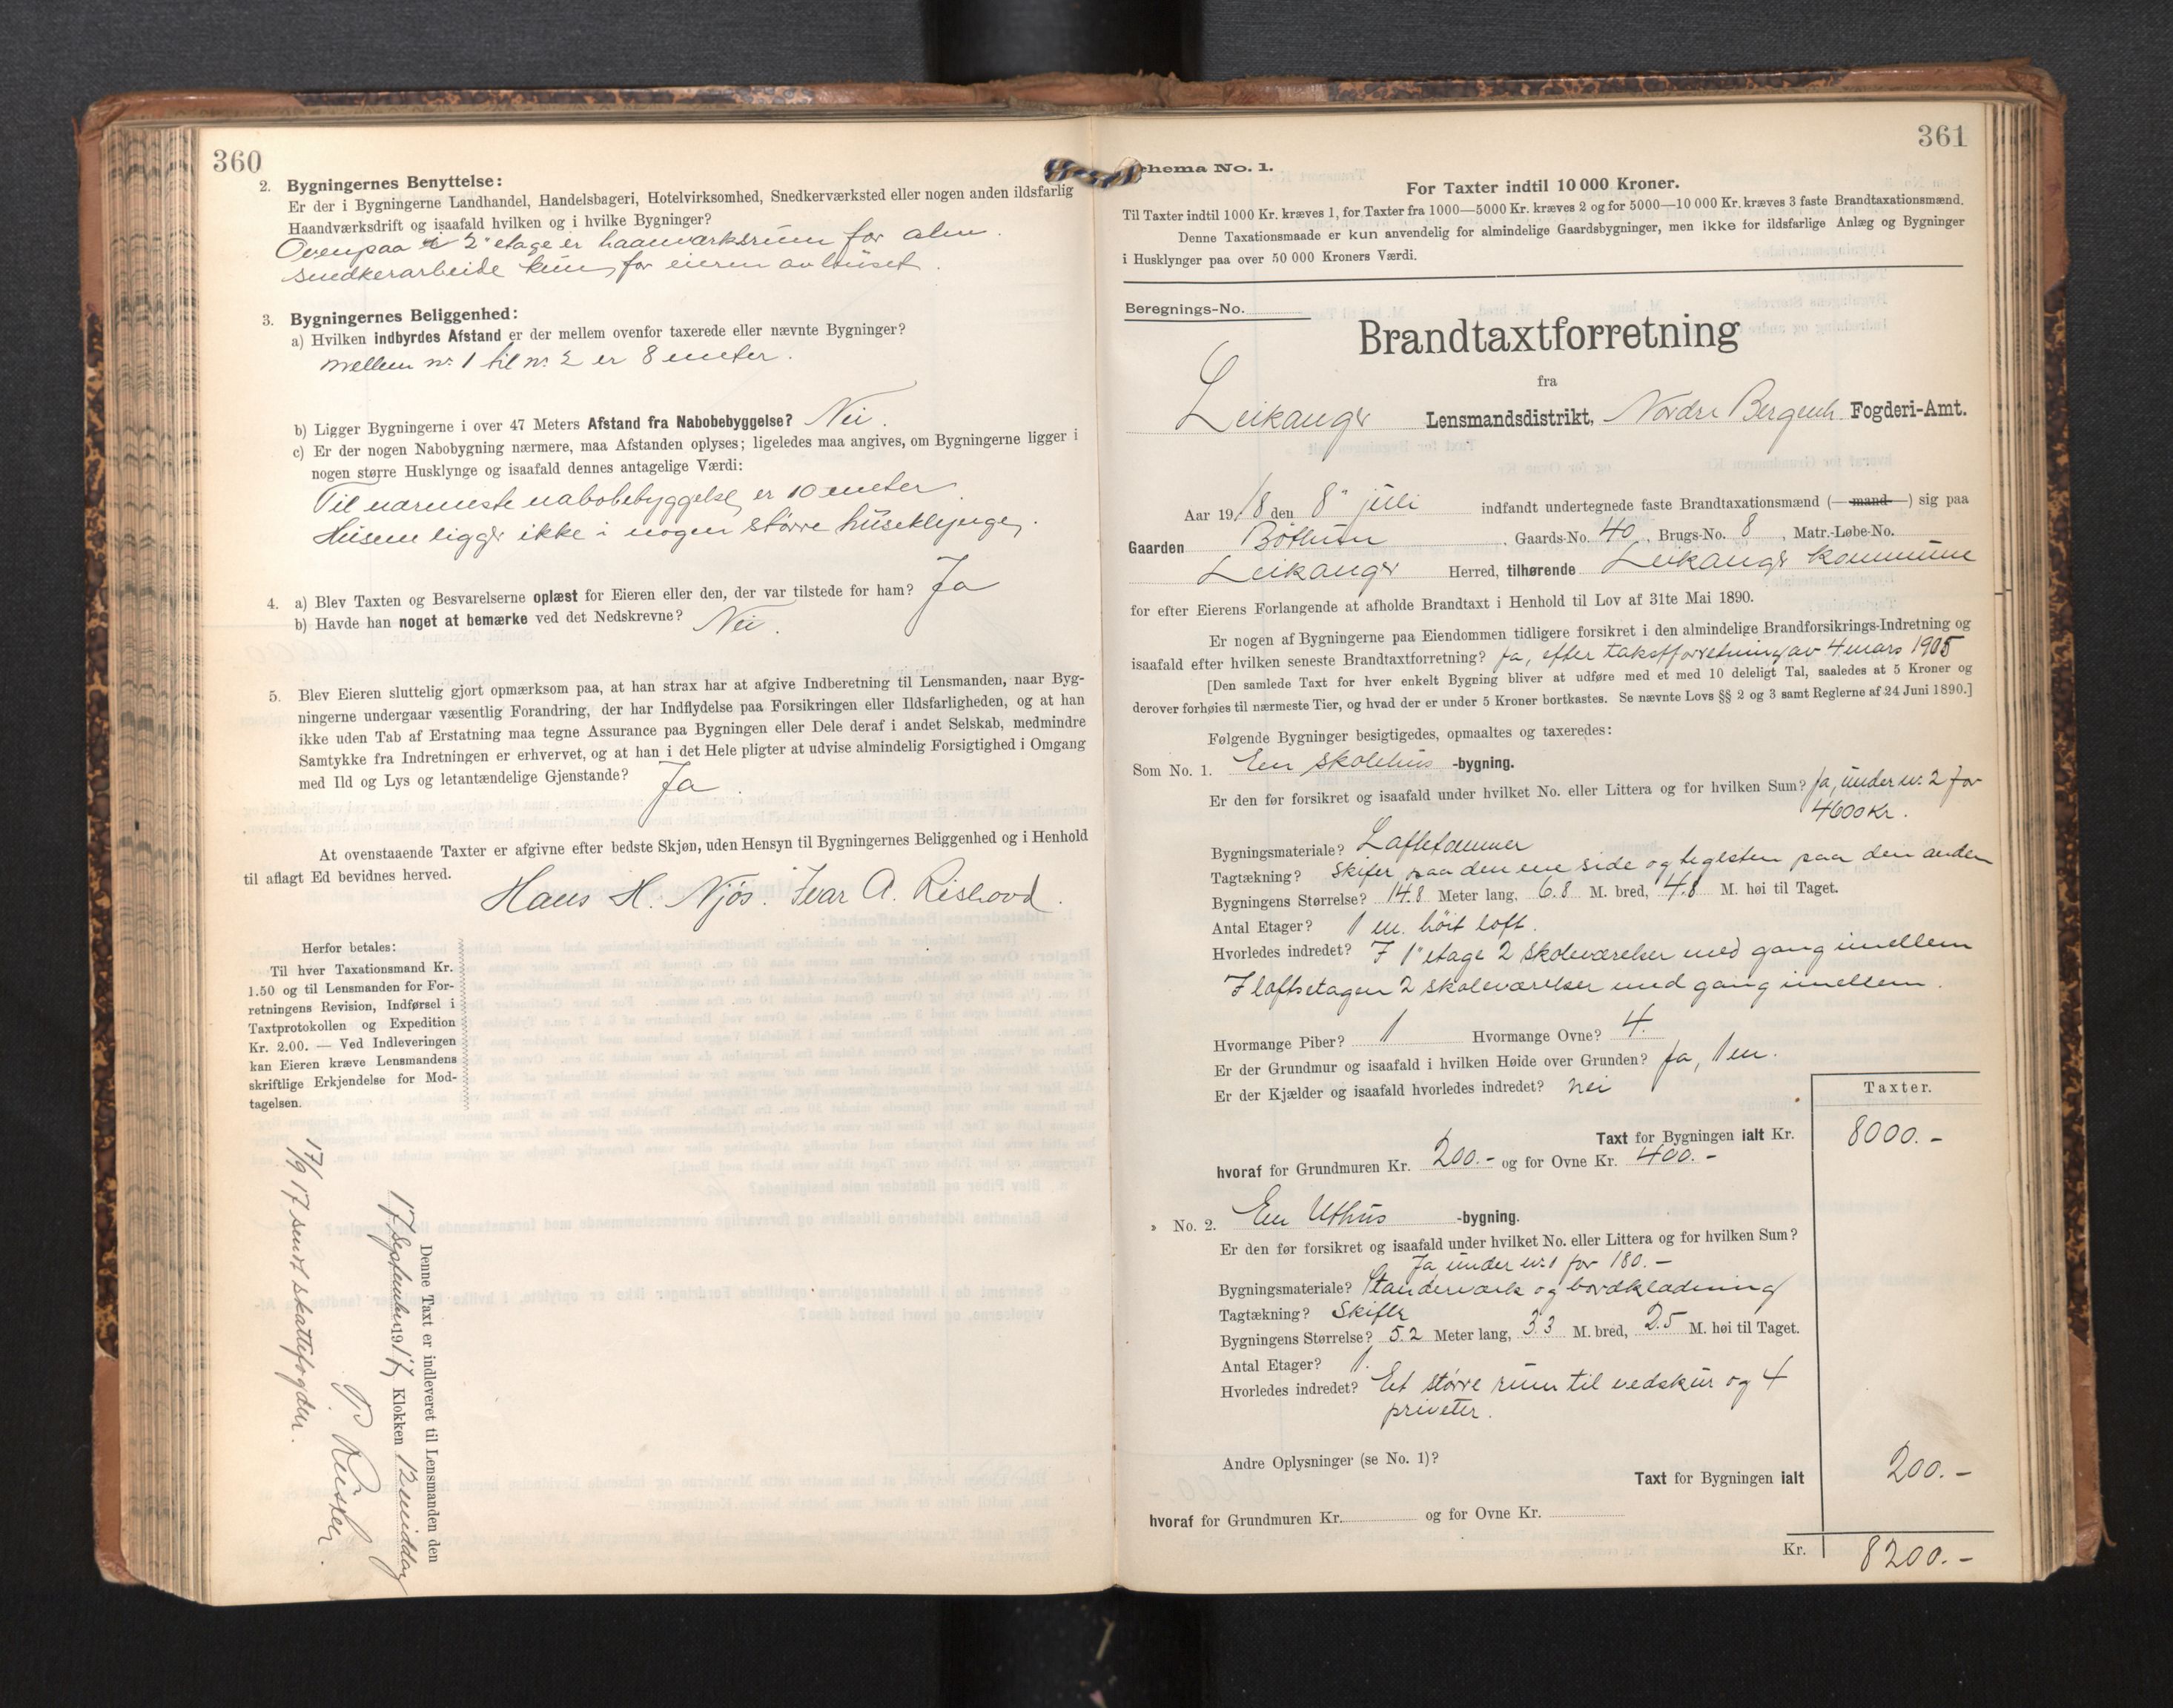 360
2. Bygningernes Benyttelse:
Er der i Bygningerne Landhandel, Handelsbageri, Hotelvirksomhed, Snedkerværksted eller nogen anden ildsfarlig
Haandværksdrift og isaafald hvilken og i hvilke Bygninger?
Ovenpaa 2' etage er for alm.
snedkerarbeide kun for eieren av huset.
3. Bygningernes Beliggenhed:
a) Hvilken indbyrdes Afstand er der mellem ovenfor taxerede eller nævnte Bygninger?
mellem nr. 1 til nr. 2 er 8 meter.
b) Ligger Bygningerne i over 47 Meters Afstand fra Nabobebyggelse? Nei.
c) Er der nogen Nabobygning nærmere, maa Afstanden oplyses; ligeledes maa angives, om Bygningerne ligger i
nogen større Husklynge og isaafald dennes antagelige Værdi:
Til nærmeste nabobebyggelse er 10 meter.
Husene ligger ikke i nogen större huseklynge.
4. a) Blev Taxten og Besvarelserne oplæst for Eieren eller den, der var tilstede for ham? Ja
b) Havde han noget at bemærke ved det Nedskrevne? Nei.
5. Blev Eieren sluttelig gjort opmærksom paa, at han strax har at afgive Indberetning til Lensmanden, naar Byg-
ningerne undergaar væsentlig Forandring, der har Indflydelse paa Forsikringen eller Ildsfarligheden, og at han
ikke uden Tab af Erstatning maa tegne Assurance paa Bygningen eller Dele deraf i andet Selskab, medmindre
Samtykke fra Indretningen er erhvervet, og at han i det Hele pligter at udvise almindelig Forsigtighed i Omgang
med Ild og Lys og letantændelige Gjenstande? Ja.
At ovenstaaende Taxter er afgivne efter bedste Skjøn, uden Hensyn til Bygningernes Beliggenhed og i Henhold
til aflagt Ed bevidnes herved.
Hans H. Njøs. Ivar A. Rishovd.
Herfor betales:
Til hver Taxationsmand Kr.
1.50 og til Lensmanden for For-
retningens Revision, Indførsel i
Taxtprotokollen og Expedition
Kr. 2.00. — Ved Indleveringen
kan Eieren kræve Lensmandens
skriftlige Erkjendelse for Mod-
tagelsen.
Denne Taxt er indleveret til Lensmanden den
17 September 1917 Klokken 12 middag
17/9 17 sendt skattefogden.
361
Schema No. 1.
For Taxter indtil 10 000 Kroner.
Til Taxter indtil 1000 Kr. kræves 1, for Taxter fra 1000—5000 Kr. kræves 2 og for 5000—10 000 Kr. kræves 3 faste Brandtaxationsmænd.
Denne Taxationsmaade er kun anvendelig for almindelige Gaardsbygninger, men ikke for ildsfarlige Anlæg og Bygninger
i Husklynger paa over 50 000 Kroners Værdi.
Beregnings-No.
Brandtaxtforretning
fra
Leikanger Lensmandsdistrikt, Nordre Bergenh. Fogderi-Amt.
Aar 1918 den 8' juli indfandt undertegnede faste Brandtaxationsmænd (—mand—) sig paa
Gaarden Böthun, Gaards-No. 40, Brugs-No. 8, Matr.-Løbe-No.
Leikanger Herred, tilhørende Leikanger kommune
for efter Eierens Forlangende at afholde Brandtaxt i Henhold til Lov af 31te Mai 1890.
Er nogen af Bygningerne paa Eiendommen tidligere forsikret i den almindelige Brandforsikrings-Indretning og
isaafald efter hvilken seneste Brandtaxtforretning? Ja, efter takstforretning av 4 mars 1905
[Den samlede Taxt for hver enkelt Bygning bliver at udføre med et med 10 deleligt Tal, saaledes at 5 Kroner og
derover forhøies til nærmeste Tier, og hvad der er under 5 Kroner bortkastes. Se nævnte Lovs §§ 2 og 3 samt Reglerne af 24 Juni 1890.]
Følgende Bygninger besigtigedes, opmaaltes og taxeredes:
Som No. 1. En skolehus -bygning.
Er den før forsikret og isaafald under hvilket No. eller Littera og for hvilken Sum? Ja, under nr. 2 for
4600 Kr.
Bygningsmateriale? Laftetømmer
Tagtækning? Skifer paa den ene side og teglsten paa den anden
Bygningens Størrelse? 14.8 Meter lang, 6.8 M. bred, 4.8 M. høi til Taget.
Antal Etager? 1 m. höit loft.
Hvorledes indredet? I 1' etage 2 skoleværelser med gang imellem
I loftsetagen 2 skoleværelser med gang imellem.
Hvormange Piber? 1 Hvormange Ovne? 4.
Er der Grundmur og isaafald i hvilken Høide over Grunden? Ja, 1 m.
Er der Kjælder og isaafald hvorledes indredet? nei
Taxter.
Taxt for Bygningen ialt Kr. 8000.-
hvoraf for Grundmuren Kr. 200.- og for Ovne Kr. 400.-
» No. 2. En Uthus -bygning.
Er den før forsikret og isaafald under hvilket No. eller Littera og for hvilken Sum?
Ja under nr. 1 for 180.-
Bygningsmateriale? Standerværk og bordklædning
Tagtækning? Skifer
Bygningens Størrelse? 5.2 Meter lang, 3.3 M. bred, 2.5 M. høi til Taget.
Antal Etager? 1.
Hvorledes indredet? Et större rum til vedskur og 4
priveter.
Andre Oplysninger (se No. 1)?
Taxt for Bygningen ialt 200.-
hvoraf for Grundmuren Kr. og for Ovne Kr.
Kr. 8200.-